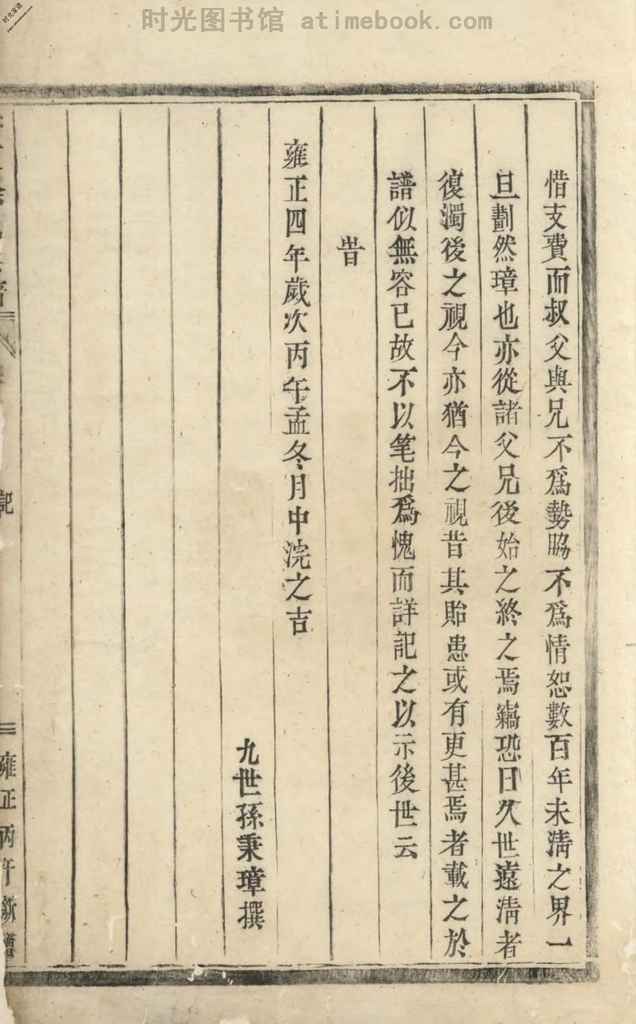 时光图书馆 atimebook.com
惜支費而叔父與兄不爲勢脇不爲情恕數百年未淸之界一
旦劃然璋也亦從諸父兄後始之終之焉竊恐日久世遠淸者
復濁後之視今亦猶今之視昔其貽患或有更甚焉者載之於
譜似無容已故不以笔拙爲愧而詳記之以示後世云
旹
雍正四年歲次丙午孟冬月中浣之吉
九世孫秉璋撰
記
雍正丙午新